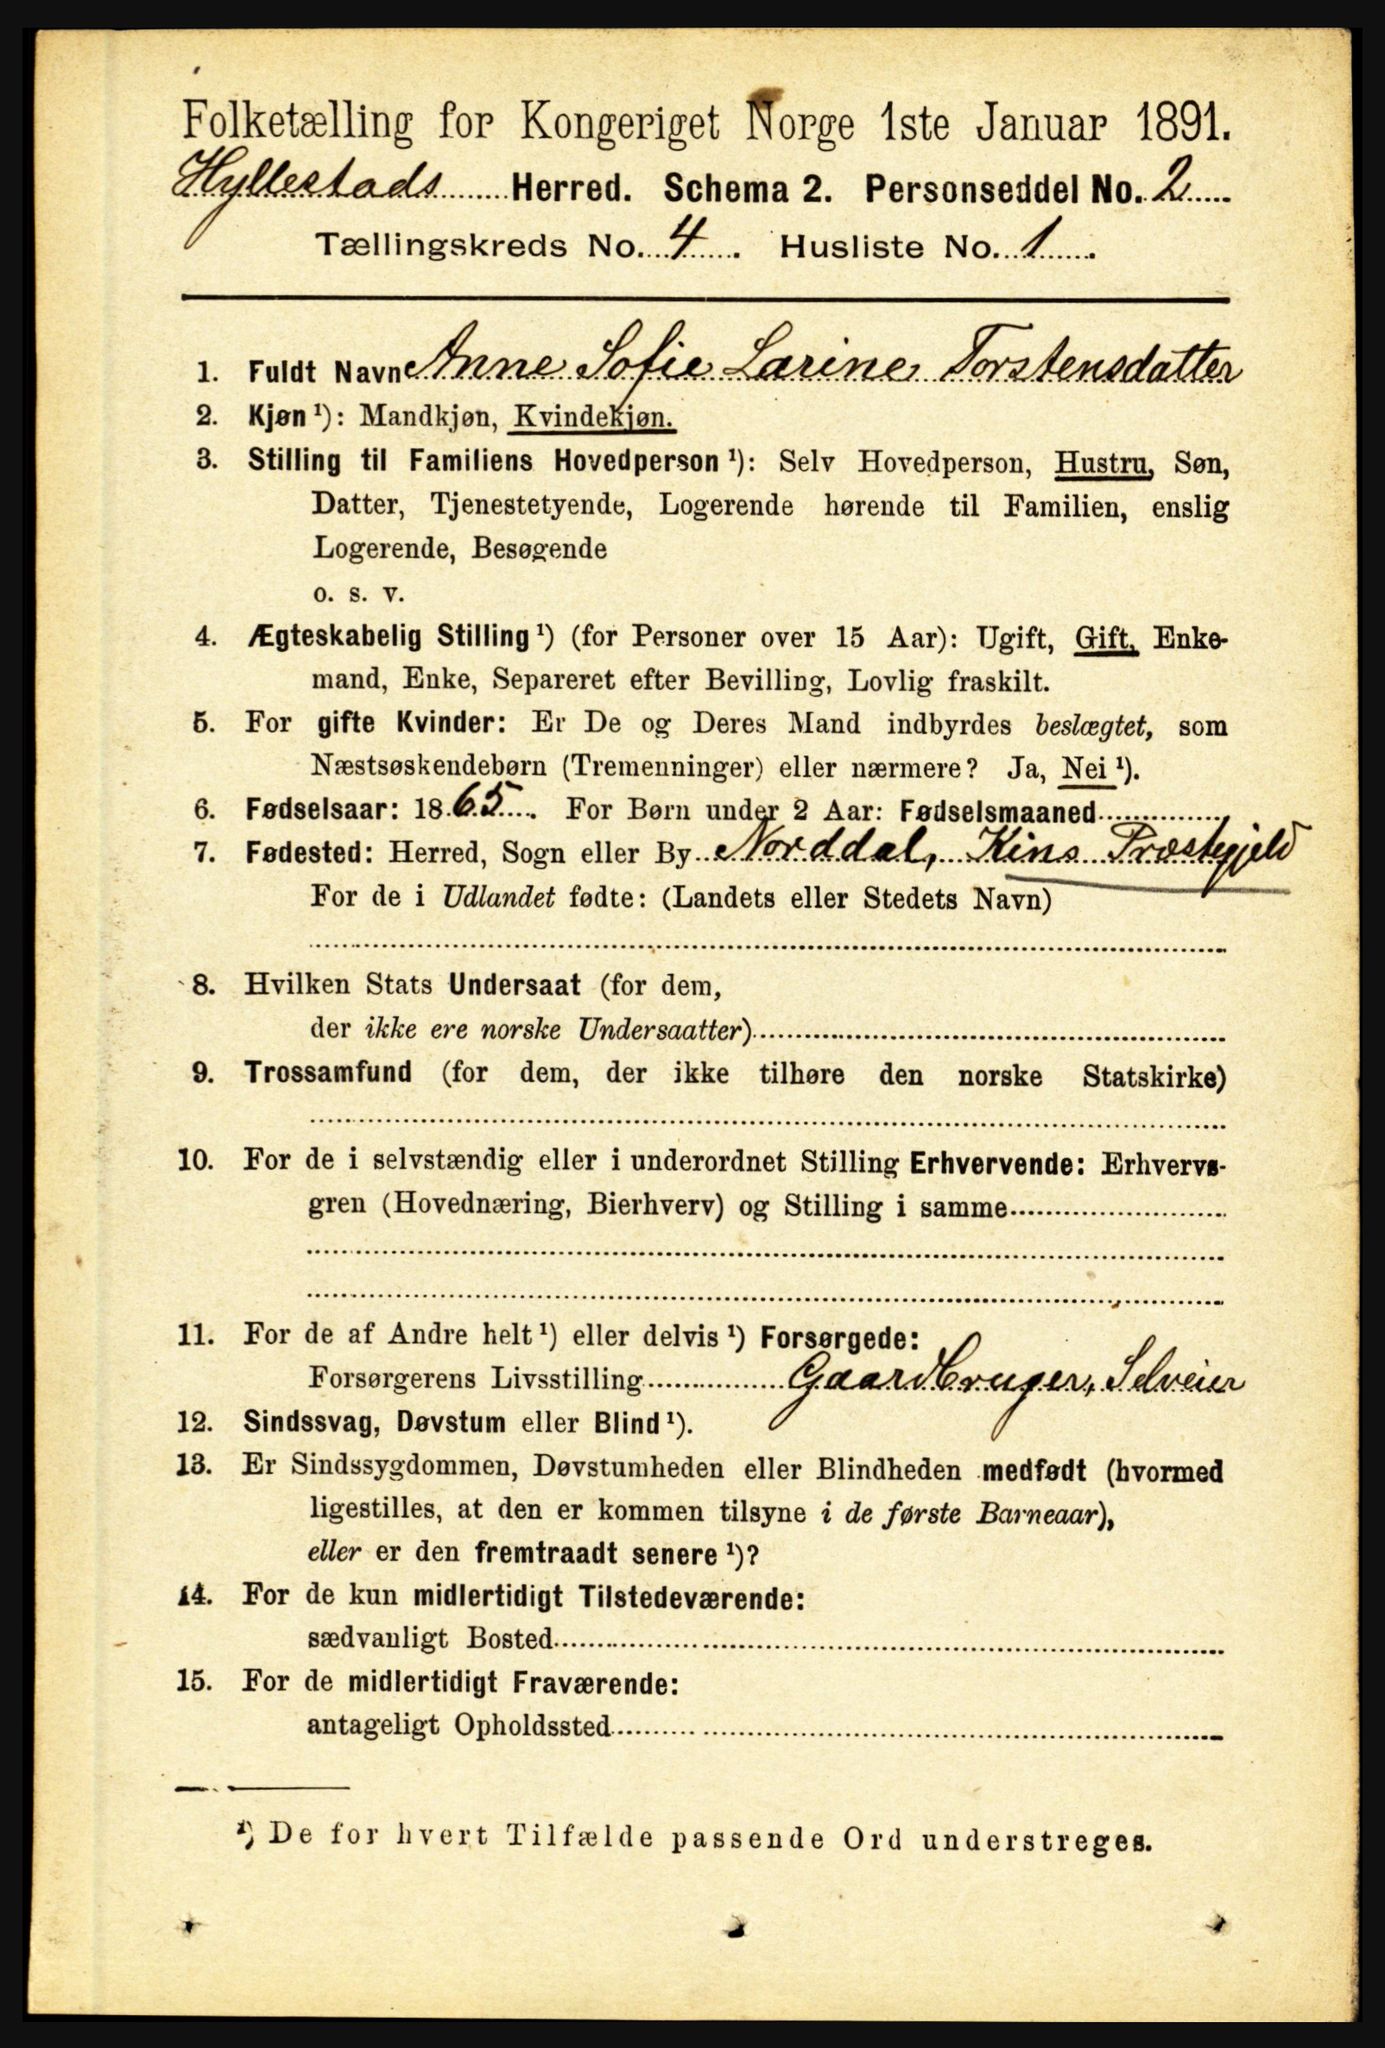 Folketælling for Kongeriget Norge 1ste Januar 1891.
Hyllestads Herred. Schema 2. Personseddel No. 2
Tællingskreds No. 4. Husliste No. 1.
1. Fuldt Navn Anne Sofie Larine Torstensdatter
2. Kjøn¹): Mandkjøn, Kvindekjøn.
3. Stilling til Familiens Hovedperson¹): Selv Hovedperson, Hustru, Søn,
Datter, Tjenestetyende, Logerende hørende til Familien, enslig
Logerende, Besøgende
o. s. v.
4. Ægteskabelig Stilling¹) (for Personer over 15 Aar): Ugift, Gift, Enke-
mand, Enke, Separeret efter Bevilling, Lovlig fraskilt.
5. For gifte Kvinder: Er De og Deres Mand indbyrdes beslægtet, som
Næstsøskendebørn (Tremenninger) eller nærmere? Ja, Nei¹).
6. Fødselsaar: 1865. For Børn under 2 Aar: Fødselsmaaned
7. Fødested: Herred, Sogn eller By Norddal, Kins Præstegjeld
For de i Udlandet fødte: (Landets eller Stedets Navn)
8. Hvilken Stats Undersaat (for dem,
der ikke ere norske Undersaatter)
9. Trossamfund (for dem, der ikke tilhøre den norske Statskirke)
10. For de i selvstændig eller i underordnet Stilling Erhvervende: Erhvervs-
gren (Hovednæring, Bierhverv) og Stilling i samme
11. For de af Andre helt¹) eller delvis¹) Forsørgede:
Forsørgerens Livsstilling Gaardbruger, Selveier
12. Sindssvag, Døvstum eller Blind¹).
13. Er Sindssygdommen, Døvstumheden eller Blindheden medfødt (hvormed
ligestilles, at den er kommen tilsyne i de første Barneaar),
eller er den fremtraadt senere¹)?
14. For de kun midlertidigt Tilstedeværende:
sædvanligt Bosted
15. For de midlertidigt Fraværende:
antageligt Opholdssted
¹) De for hvert Tilfælde passende Ord understreges.